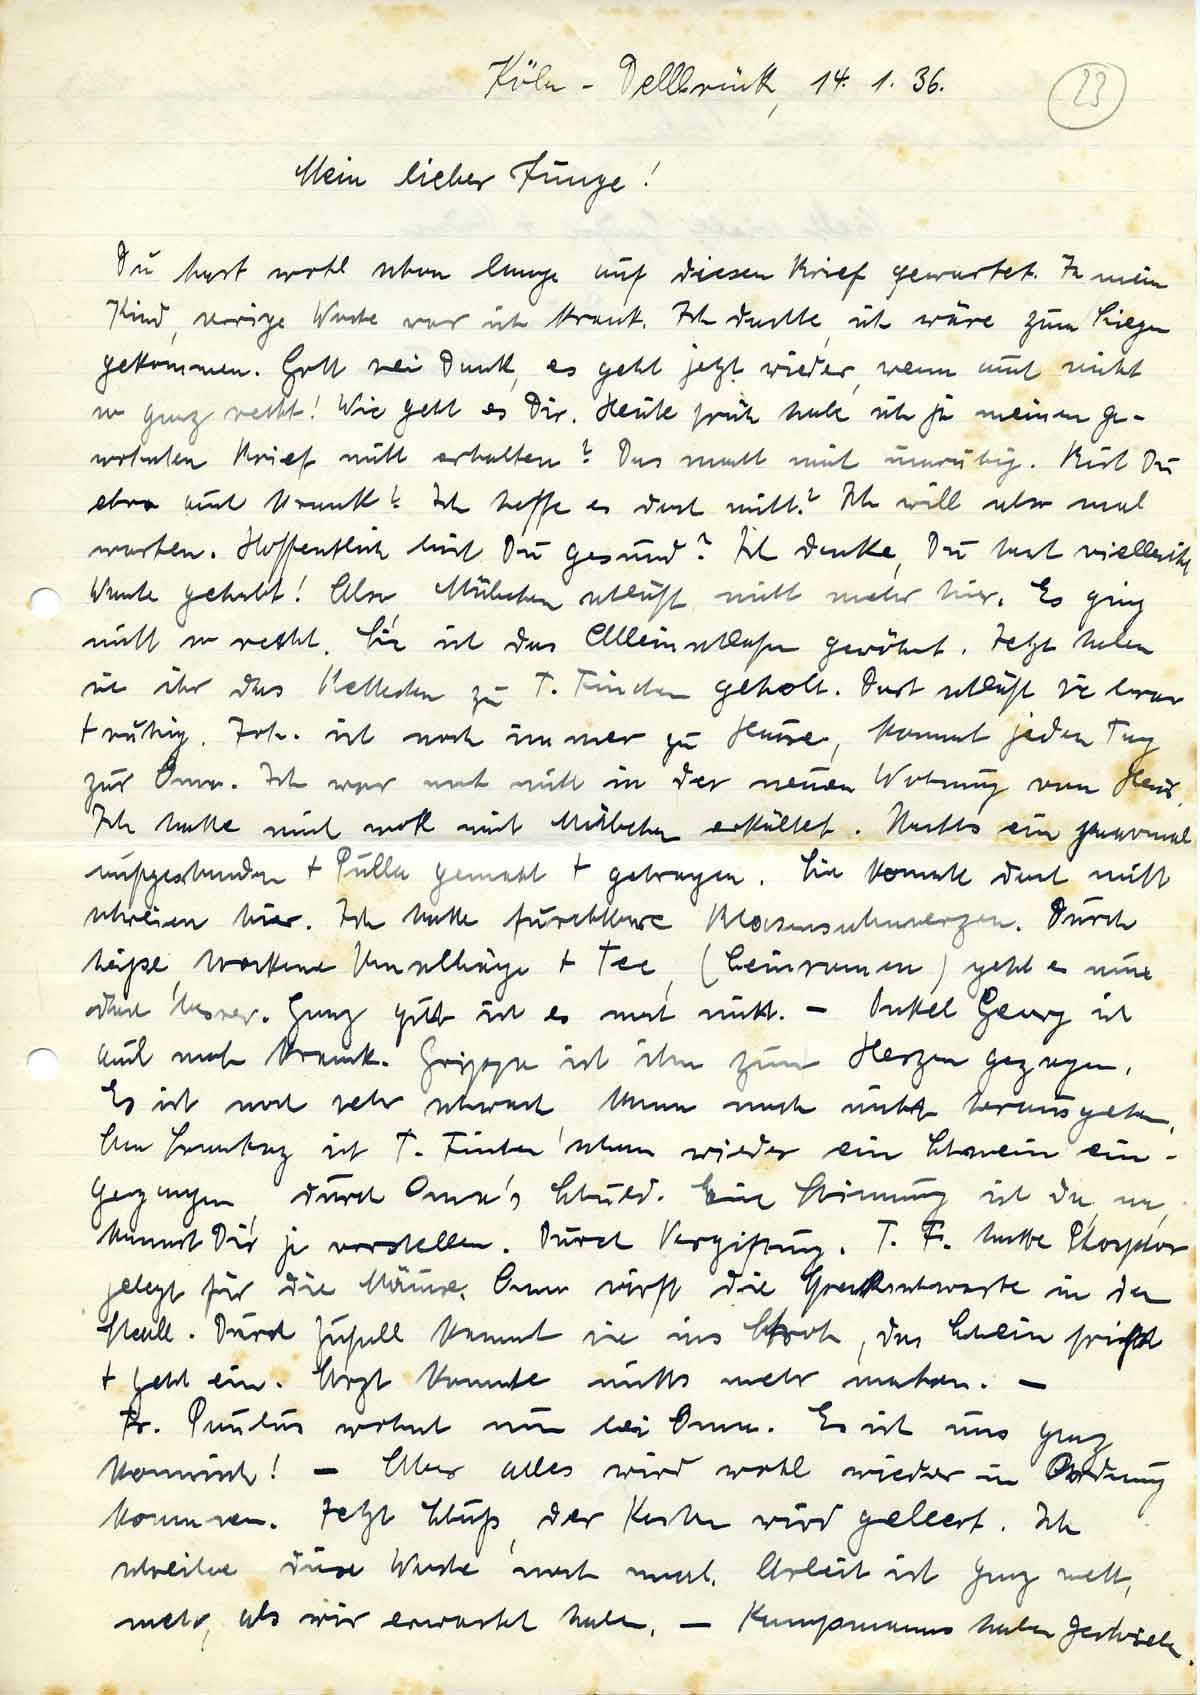 Köln - Dellbrück, 14. 1. 36.
23
Mein lieber Junge!
Du hast wohl schon lange auf diesen Brief gewartet. Ja mein
Kind, vorige Woche war ich krank. Ich dachte, ich wäre zum Liegen
gekommen. Gott sei Dank, es geht jetzt wieder, wenn auch nicht
so ganz recht! Wie geht es Dir. Heute früh habe ich ja meinen ge-
wohnten Brief nicht erhalten? Das macht mich unruhig. Bist Du
etwa auch krank? Ich hoffe es doch nicht? Ich will also mal
warten. Hoffentlich bist Du gesund? Ich denke, Du hast vielleicht
Wache gehabt! Also, Mäuschen schläft nicht mehr hier. Es ging
nicht so recht. Sie ist das Alleinschlafen gewöhnt. Jetzt haben
sie ihr das Bettchen zu T. Finchen geholt. Dort schläft sie brav
+ ruhig. Joh. ist noch immer zu Hause, kommt jeden Tag
zur Oma. Ich war noch nicht in der neuen Wohnung von
Ich hatte mich wohl mit erkältet. Nachts ein paarmal
aufgestanden + Pulla gemacht + getragen. Sie konnte doch nicht
schreien hier. Ich hatte furchtbare Blasenschmerzen. Durch
heiße, trockene Umschläge + Tee, (Leinsamen) geht es nun
schon besser. Ganz gut ist es noch nicht. - Onkel Georg ist
auch noch krank. Grippe ist ihm zum Herzen gezogen.
Er ist noch sehr schwach kann noch nicht herausgehen.
Am Samstag ist T. Finchen schon wieder ein Schwein ein-
gegangen, durch Oma's Schuld. Eine Stimmung ist da, na,
kannst Dir ja vorstellen. Durch Vergiftung. T. F. hatte Phosphor
gelegt für die Mäuse. Oma wirft die Speckschwarte in den
Stall. Durch Zufall kommt sie ins Stroh, das Schwein frißt
+ geht ein. Arzt konnte nichts mehr machen. -
Fr. Paulus wohnt nun bei Oma. Es ist uns ganz
komisch! - Aber alles wird wohl wieder in Ordnung
kommen. Jetzt Schluß, der Kasten wird geleert. Ich
schreibe diese Woche noch mal. Arbeit ist ganz nett,
mehr, als wir erwartet haben. - Kampmanns haben